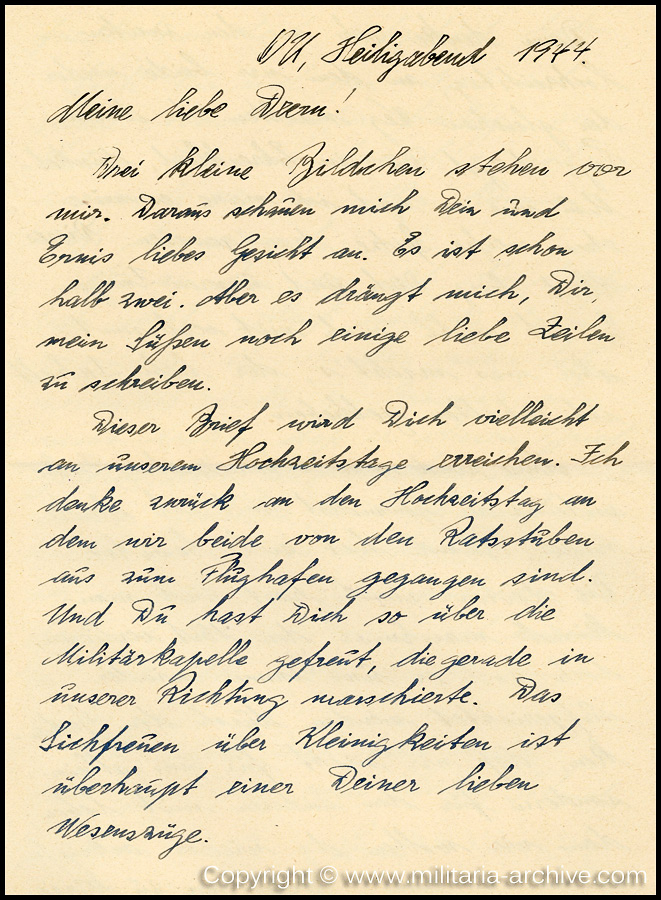 OU, Heiligabend 1944.
Meine liebe Dzern!
Drei kleine Bildchen stehen vor
mir. Daraus schauen mich Dein und
Ernis liebes Gesicht an. Es ist schon
halb zwei. Aber es drängt mich, Dir,
mein Süßen noch einige liebe Zeilen
zu schreiben.
Dieser Brief wird Dich vielleicht
an unserem Hochzeitstage erreichen. Ich
denke zurück an den Hochzeitstag an
dem wir beide von den Ratsstuben
aus zum Flughafen gegangen sind.
Und Du hast Dich so über die
Militärkapelle gefreut, die gerade in
unserer Richtung marschierte. Das
Sichfreuen über Kleinigkeiten ist
überhaupt einer Deiner lieben
Wesenszüge.
Copyright © www.militaria-archive.com